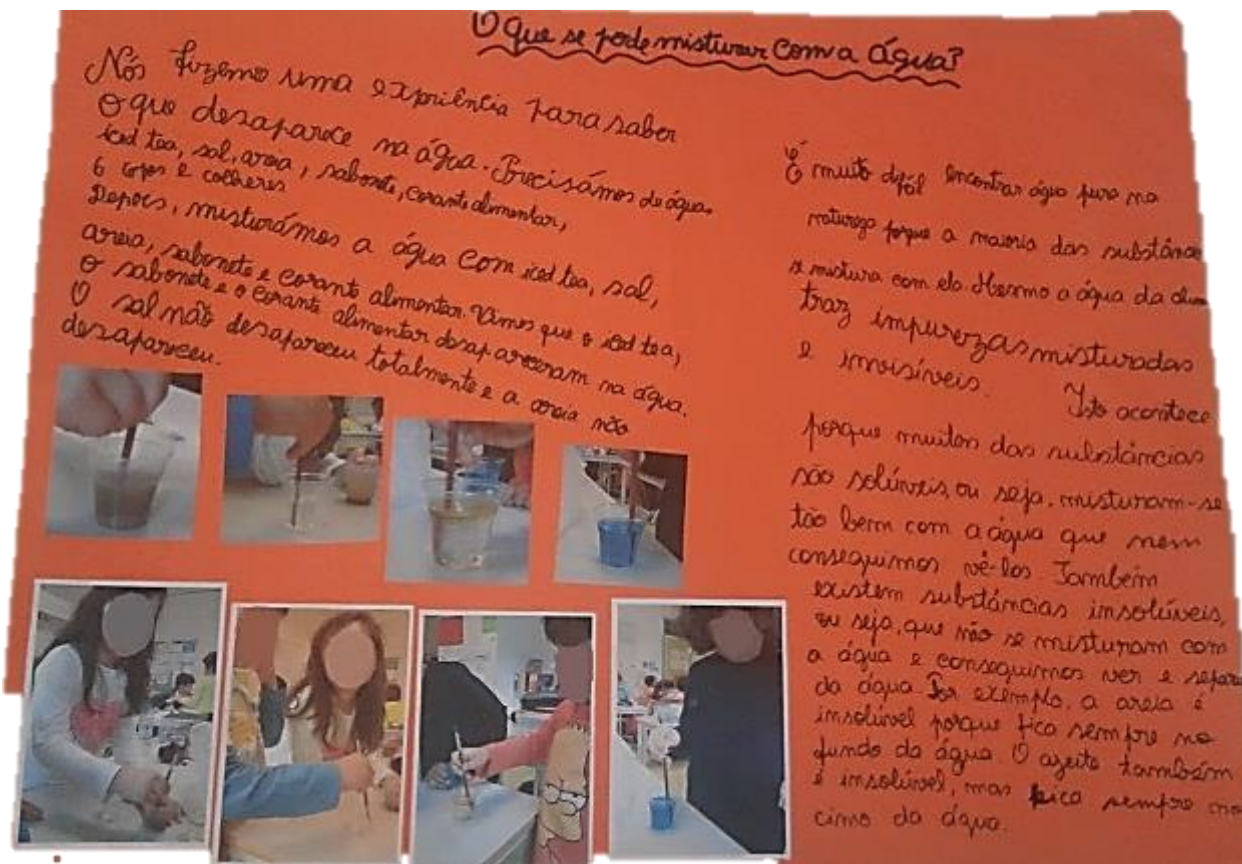 O que se pode misturar com a água?
Nós fizemo uma expriência para saber
o que desaparece na água. Precisámos de água,
iced tea, sal, areia, sabonete, corante alimentar,
6 copos e colheres
Depois, misturámos a água com iced tea, sal,
areia, sabonete e corante alimentar. Vimos que o iced tea,
o sabonete e o corante alimentar desapareceram na água.
O sal não desapareceu totalmente e a areia não
desapareceu.
É muito difícil encontrar água pura na
natureza porque a maioria das substânc
se mistura com ela. Mesmo a água da chu
traz impurezas misturadas
e invisíveis. Isto acontece
porque muitas das substâncias
são solúveis, ou seja, misturam-se
tão bem com a água que nem
conseguimos vê-las. Também
existem substâncias insolúveis,
ou seja, que não se misturam com
a água e conseguimos ver e separa
da água. Por exemplo, a areia é
insolúvel porque fica sempre no
fundo da água. O azeite também
é insolúvel, mas fica sempre no
cimo da água.